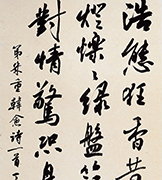 浩態狂香昔
燈爍爍綠盤
對情驚恐身
第幾重 韓愈詩一首